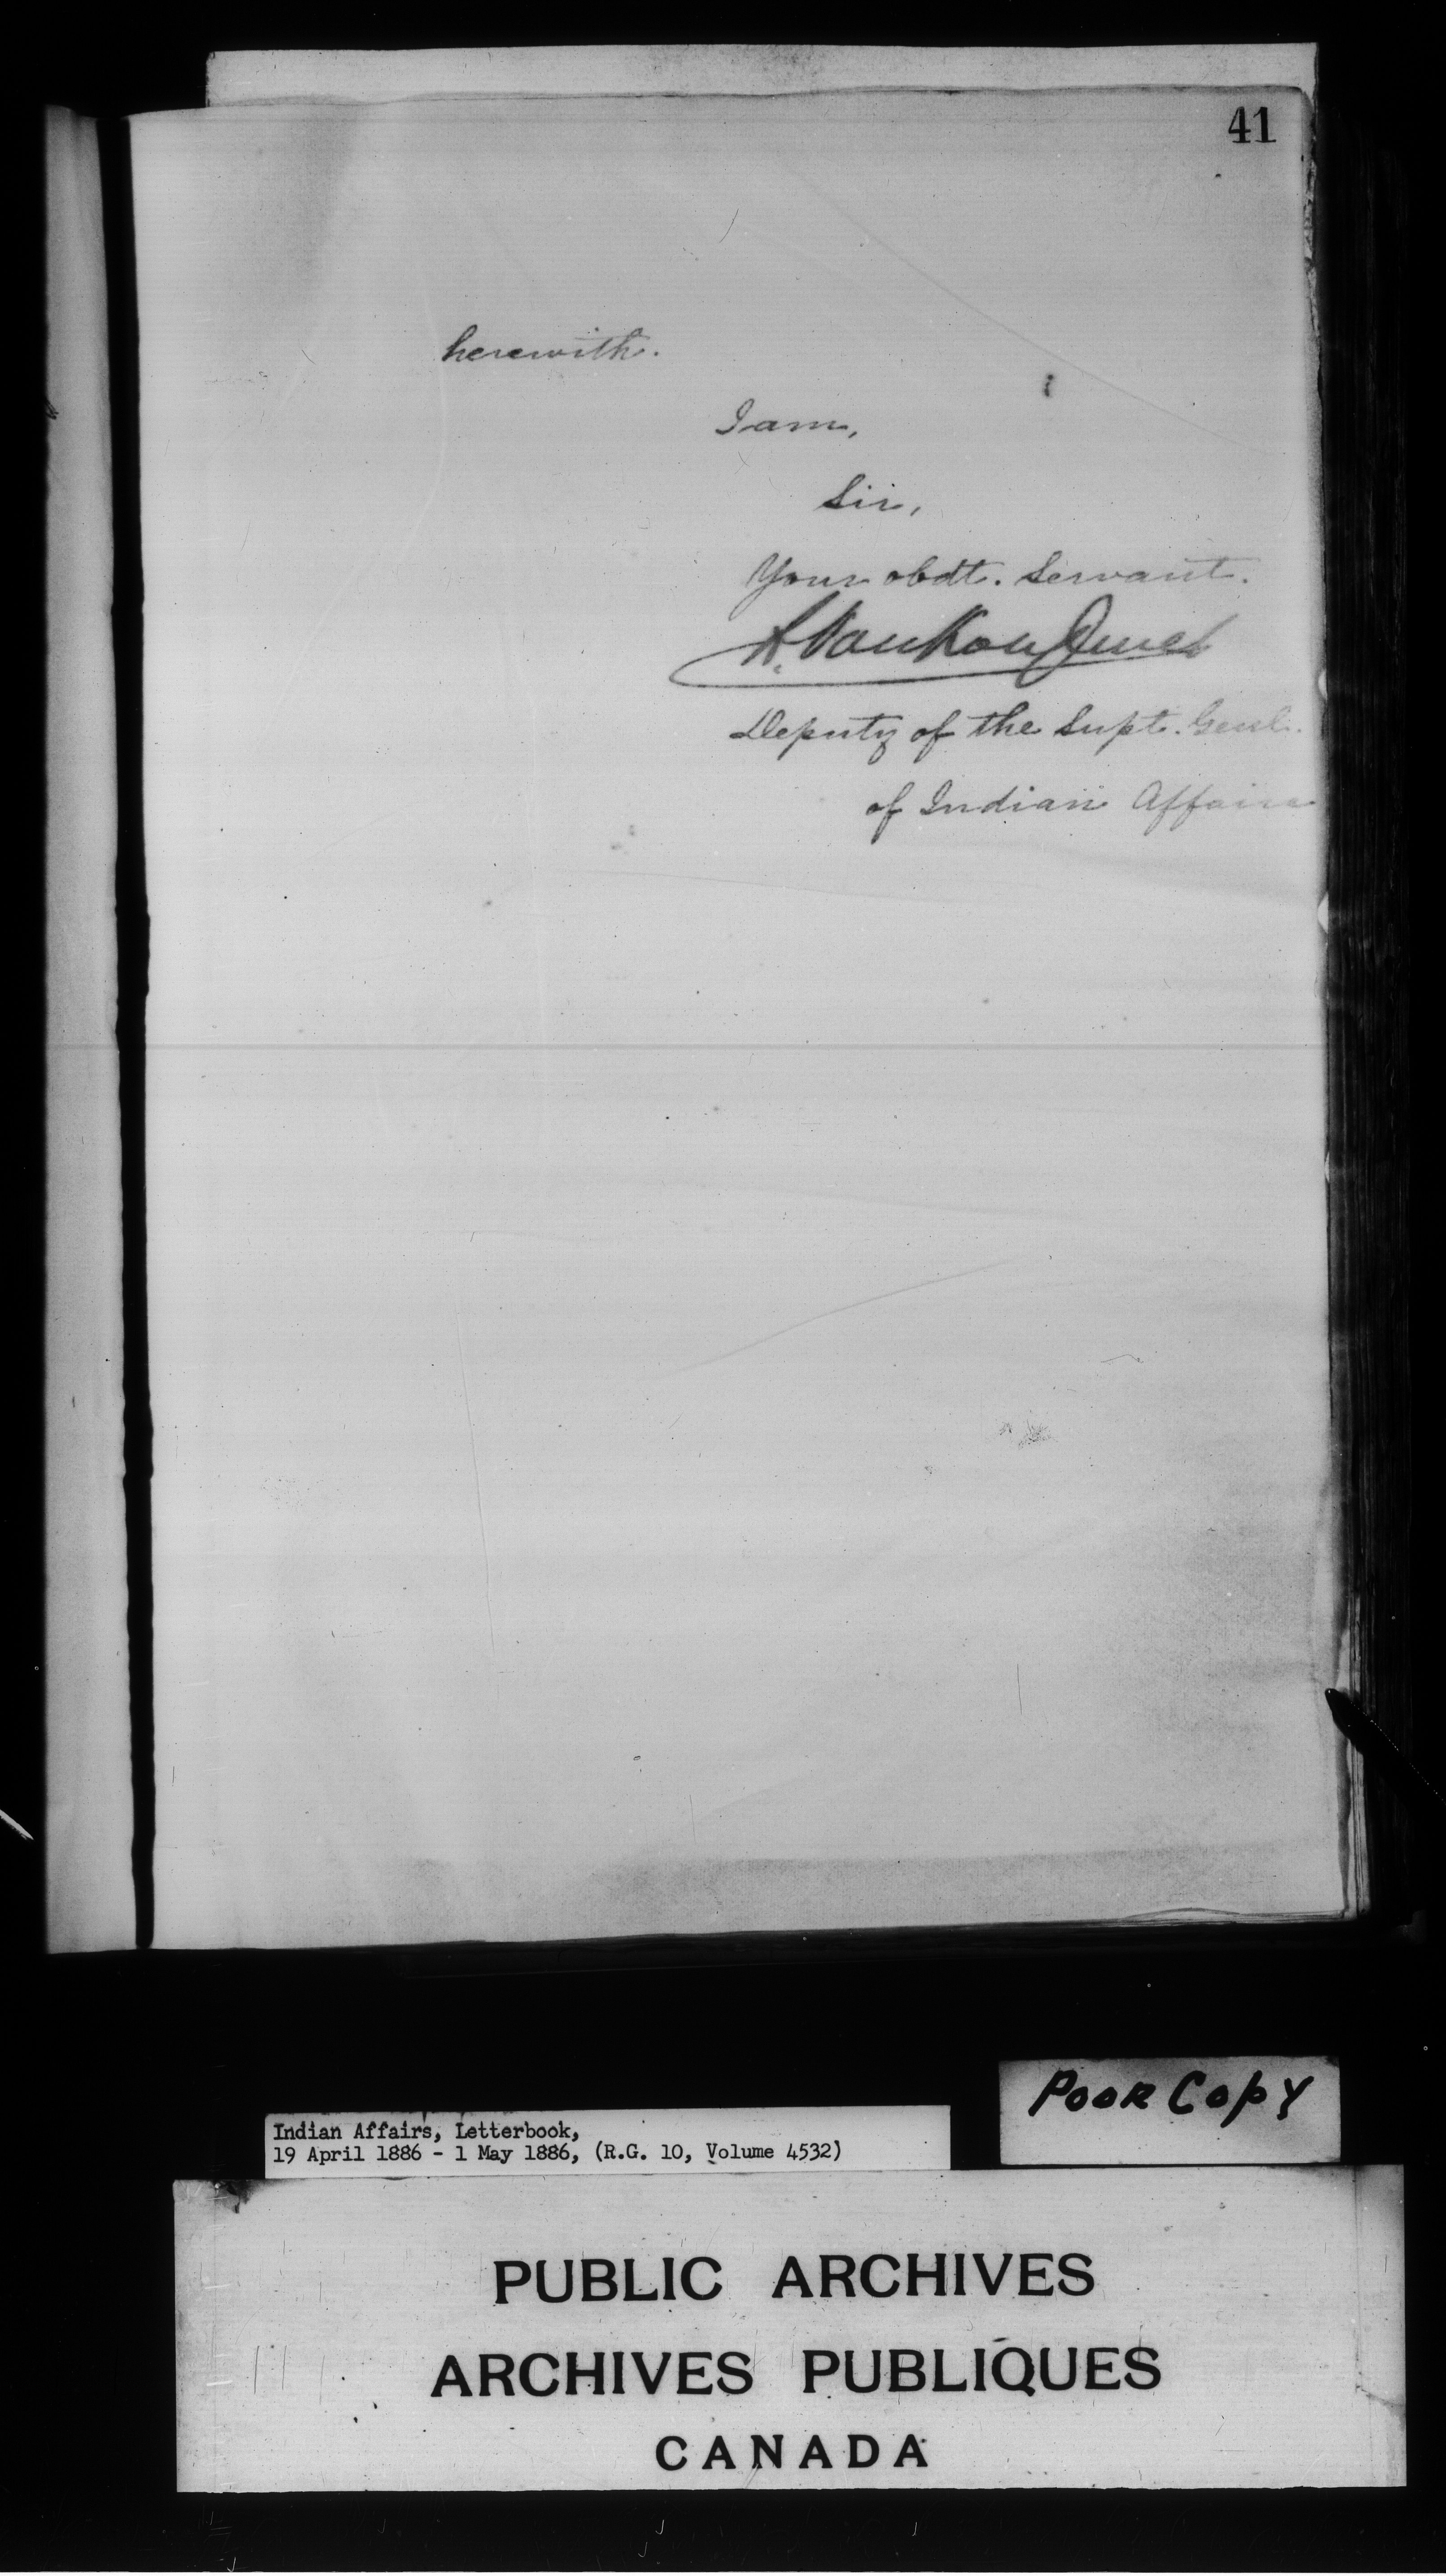 41
herewith.
I am,
Sir,
Your obdt. Servant.
L. VanKoughnet
Deputy of the Supt. Genl.
of Indian Affairs
Poor Copy
Indian Affairs, Letterbook,
19 April 1886 - 1 May 1886, (R.G. 10, Volume 4532)
PUBLIC ARCHIVES
ARCHIVES PUBLIQUES
CANADA